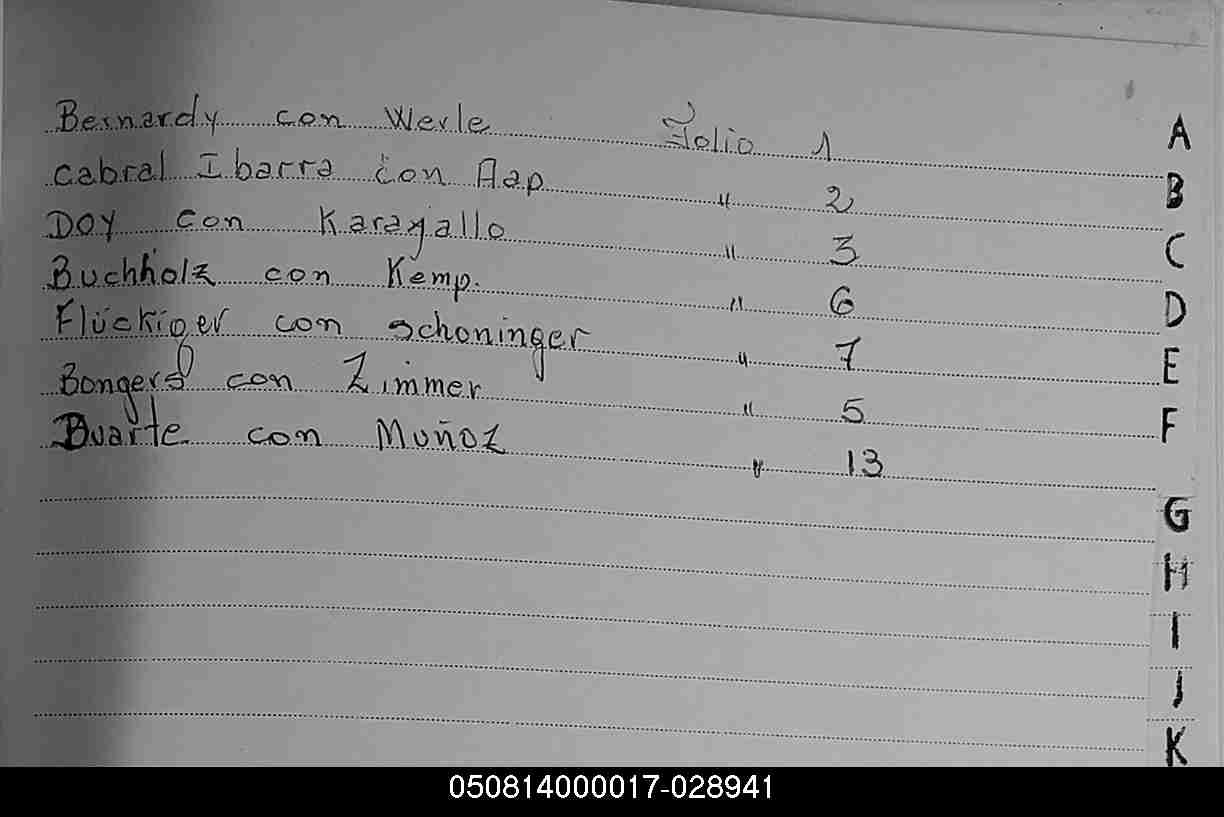 Bernardy con Werle Folio 1
Cabral Ibarra con Aap " 2
Doy con Karayallo " 3
Buchholz con Kemp. " 6
Flückiger con Schoninger " 7
Bongers con Zimmer " 5
Duarte con Muñoz " 13
A
B
C
D
E
F
G
H
I
J
K
050814000017-028941